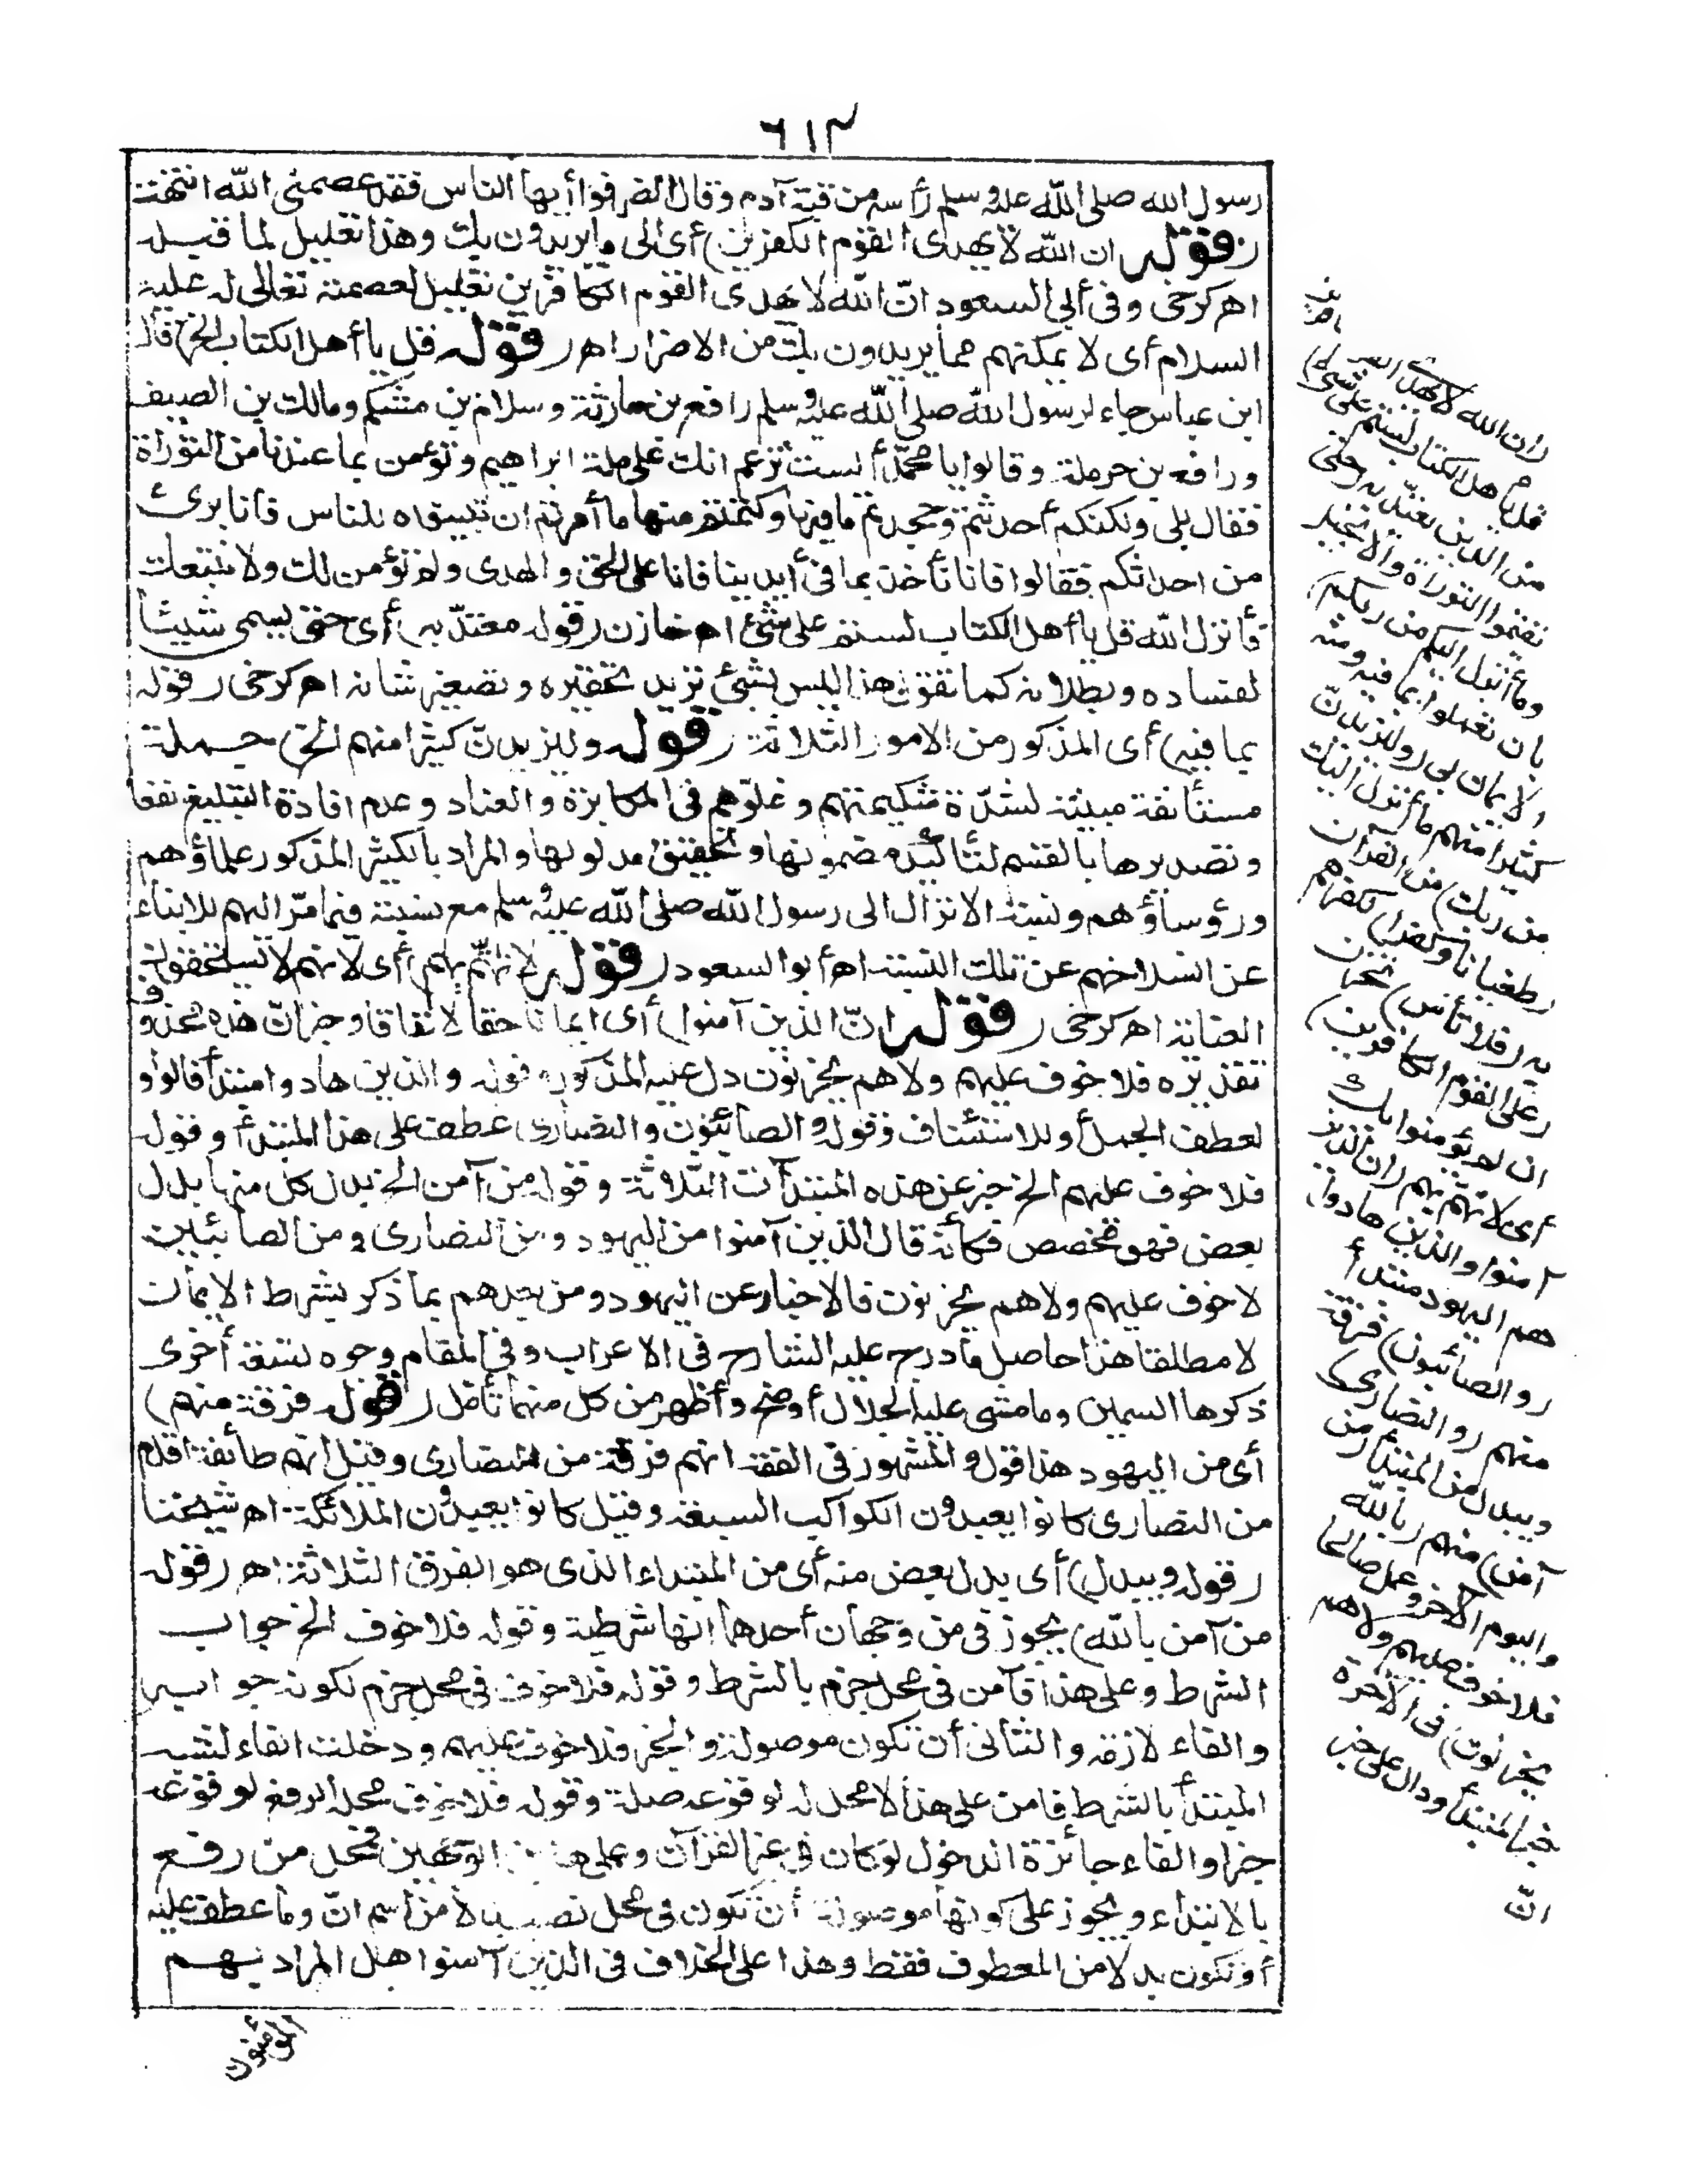 ٦١٣
رسول الله صلى الله عليه وسلم رأسه من قبة آدم وقال انصرفوا أيها الناس فقد عصمنى الله انتهت
(قوله ان الله لا يهدى القوم الكفرين) أى الى ما يريدون بك وهذا تعليل لما قبله
اهر كرخى وفى أبى السعود انّ الله لا يهدى القوم الكافرين تعليل لعصمته تعالى له عليه
السلام أى لا يمكنهم مما يريدون بك من الاضرار اهر (قوله قل يا أهل الكتاب الخ) قال
ابن عباس جاء لرسول الله صلى الله عليه وسلم رافع بن حارثة وسلام بن مشكم ومالك بن الصيف
ورافع بن حرملة وقالوا يا محمد ألست تزعم انك على ملة ابراهيم وتؤمن بما عندنا من التوراة
فقال بلى ولكنكم أحدثتم وجحدتم ما فيها وكتمتم منها ما أمرتم ان تبينوه للناس فأنا برئ
من احداثكم فقالوا فانا نأخذ بما فى أيدينا فانا على الحق والهدى ولم نؤمن لك ولا نتبعك
فأنزل الله قل يا أهل الكتاب لستم على شئ اهر خازن (قوله معتدّ به) أى حتى يسمى شيئا
لفساده وبطلانه كما تقول هذا ليس بشئ تريد تحقيره وتصغير شانه اهر كرخى (قوله
بما فيه) أى المذكور من الامور الثلاثة (قوله وليزيدنّ كثيرا منهم الخ) جملة
مستأنفة مبينة لشدّة شكيمتهم وغلوّهم فى المكابرة والعناد وعدم افادة التبليغ نفعا
وتصديرها بالقسم لتأكيد مضمونها وتحقيق مدلولها والمراد بالكثير المذكور علماؤهم
ورؤساؤهم ونسبة الانزال الى رسول الله صلى الله عليه وسلم مع نسبته فيما مرّ اليهم للانباء
عن انسلاخهم عن تلك النسبة اهر أبو السعود (قوله لا تهتم بهم) أى لانهم لا يستحقون
العناية اهر كرخى (قوله انّ الذين آمنوا) أى ايمانا حقا لا نفاقا وخبر انّ هذه محذوف
تقديره فلا خوف عليهم ولا هم يحزنون دل عليه المذكور وقوله والذين هادوا مبتدأ فالواو
لعطف الجمل أو للاستئناف وقوله والصابئون والنصارى عطف على هذا المبتدأ وقوله
فلا خوف عليهم الخ خبر عن هذه المبتدآت الثلاثة وقوله من آمن الخ بدل كل منها بدل
بعض فهو مخصص فكأنه قال الذين آمنوا من اليهود ومن النصارى ومن الصابئين
لا خوف عليهم ولا هم يحزنون فالاخبار عن اليهود ومن بعدهم بما ذكر بشرط الايمان
لا مطلقا هذا حاصل ما درج عليه الشارح فى الاعراب وفى المقام وجوه تسعة أخرى
ذكرها السمين وما مشى عليه الجلال أوضح وأظهر من كل منها تأمل (قوله فرقة منهم)
أى من اليهود هذا قول والمشهور فى الفقه انهم فرقة من النصارى وقيل انهم طائفة اقدم
من النصارى كانوا يعبدون الكواكب السبعة وقيل كانوا يعبدون الملائكة اهر شيخنا
(قوله ويبدل) أى بدل بعض منه أى من المبتداء الذى هو الفرق الثلاثة اهر (قوله
من آمن بالله) يجوز فى من وجهان أحدهما انها شرطية وقوله فلا خوف الخ جواب
الشرط وعلى هذا فآمن فى محل جزم بالشرط وقوله فلا خوف فى محل جزم لكونه جوابه
والفاء لازمة والثانى أن تكون موصولة والخبر فلا خوف عليهم ودخلت الفاء لشبه
المبتدأ بالشرط فآمن على هذا لا محل له لوقوعه صلة وقوله فلا خوف محله الرفع لوقوعه
خبرا والفاء جائزة الدخول لو كان فى غير القرآن وعلى هذين الوجهين فمحل من رفع
بالابتداء ويجوز على كونها موصولة أن تكون فى محل نصب بدلا من اسم انّ وما عطف عليه
أو تكون بدلا من المعطوف فقط وهذا على الخلاف فى الذين آمنوا هل المراد بهم
المؤمنون
(ان الله لا يهدى
قل يا أهل الكتاب لستم على شئ)
من الدين معتدّ به (حتى
تقيموا التوراة والانجيل
وما أنزل اليكم من ربكم)
بان تعملوا بما فيه ومنه
الايمان بى (وليزيدنّ
كثيرا منهم ما أنزل اليك
من ربك) من القرآن
(طغيانا وكفرا) لكفرهم
به (فلا تأس) تحزن
(على القوم الكافرين)
ان لم يؤمنوا بك
أى لا تهتم بهم (ان الذين
آمنوا والذين هادوا)
هم اليهود مبتدأ
(والصابئون) فرقة
منهم (والنصارى)
ويبدل من المبتدأ (من
آمن) منهم (بالله
واليوم الآخر وعمل صالحا
فلا خوف عليهم ولا هم
يحزنون) فى الآخرة
خبر المبتدأ ودال على خبر
انّ